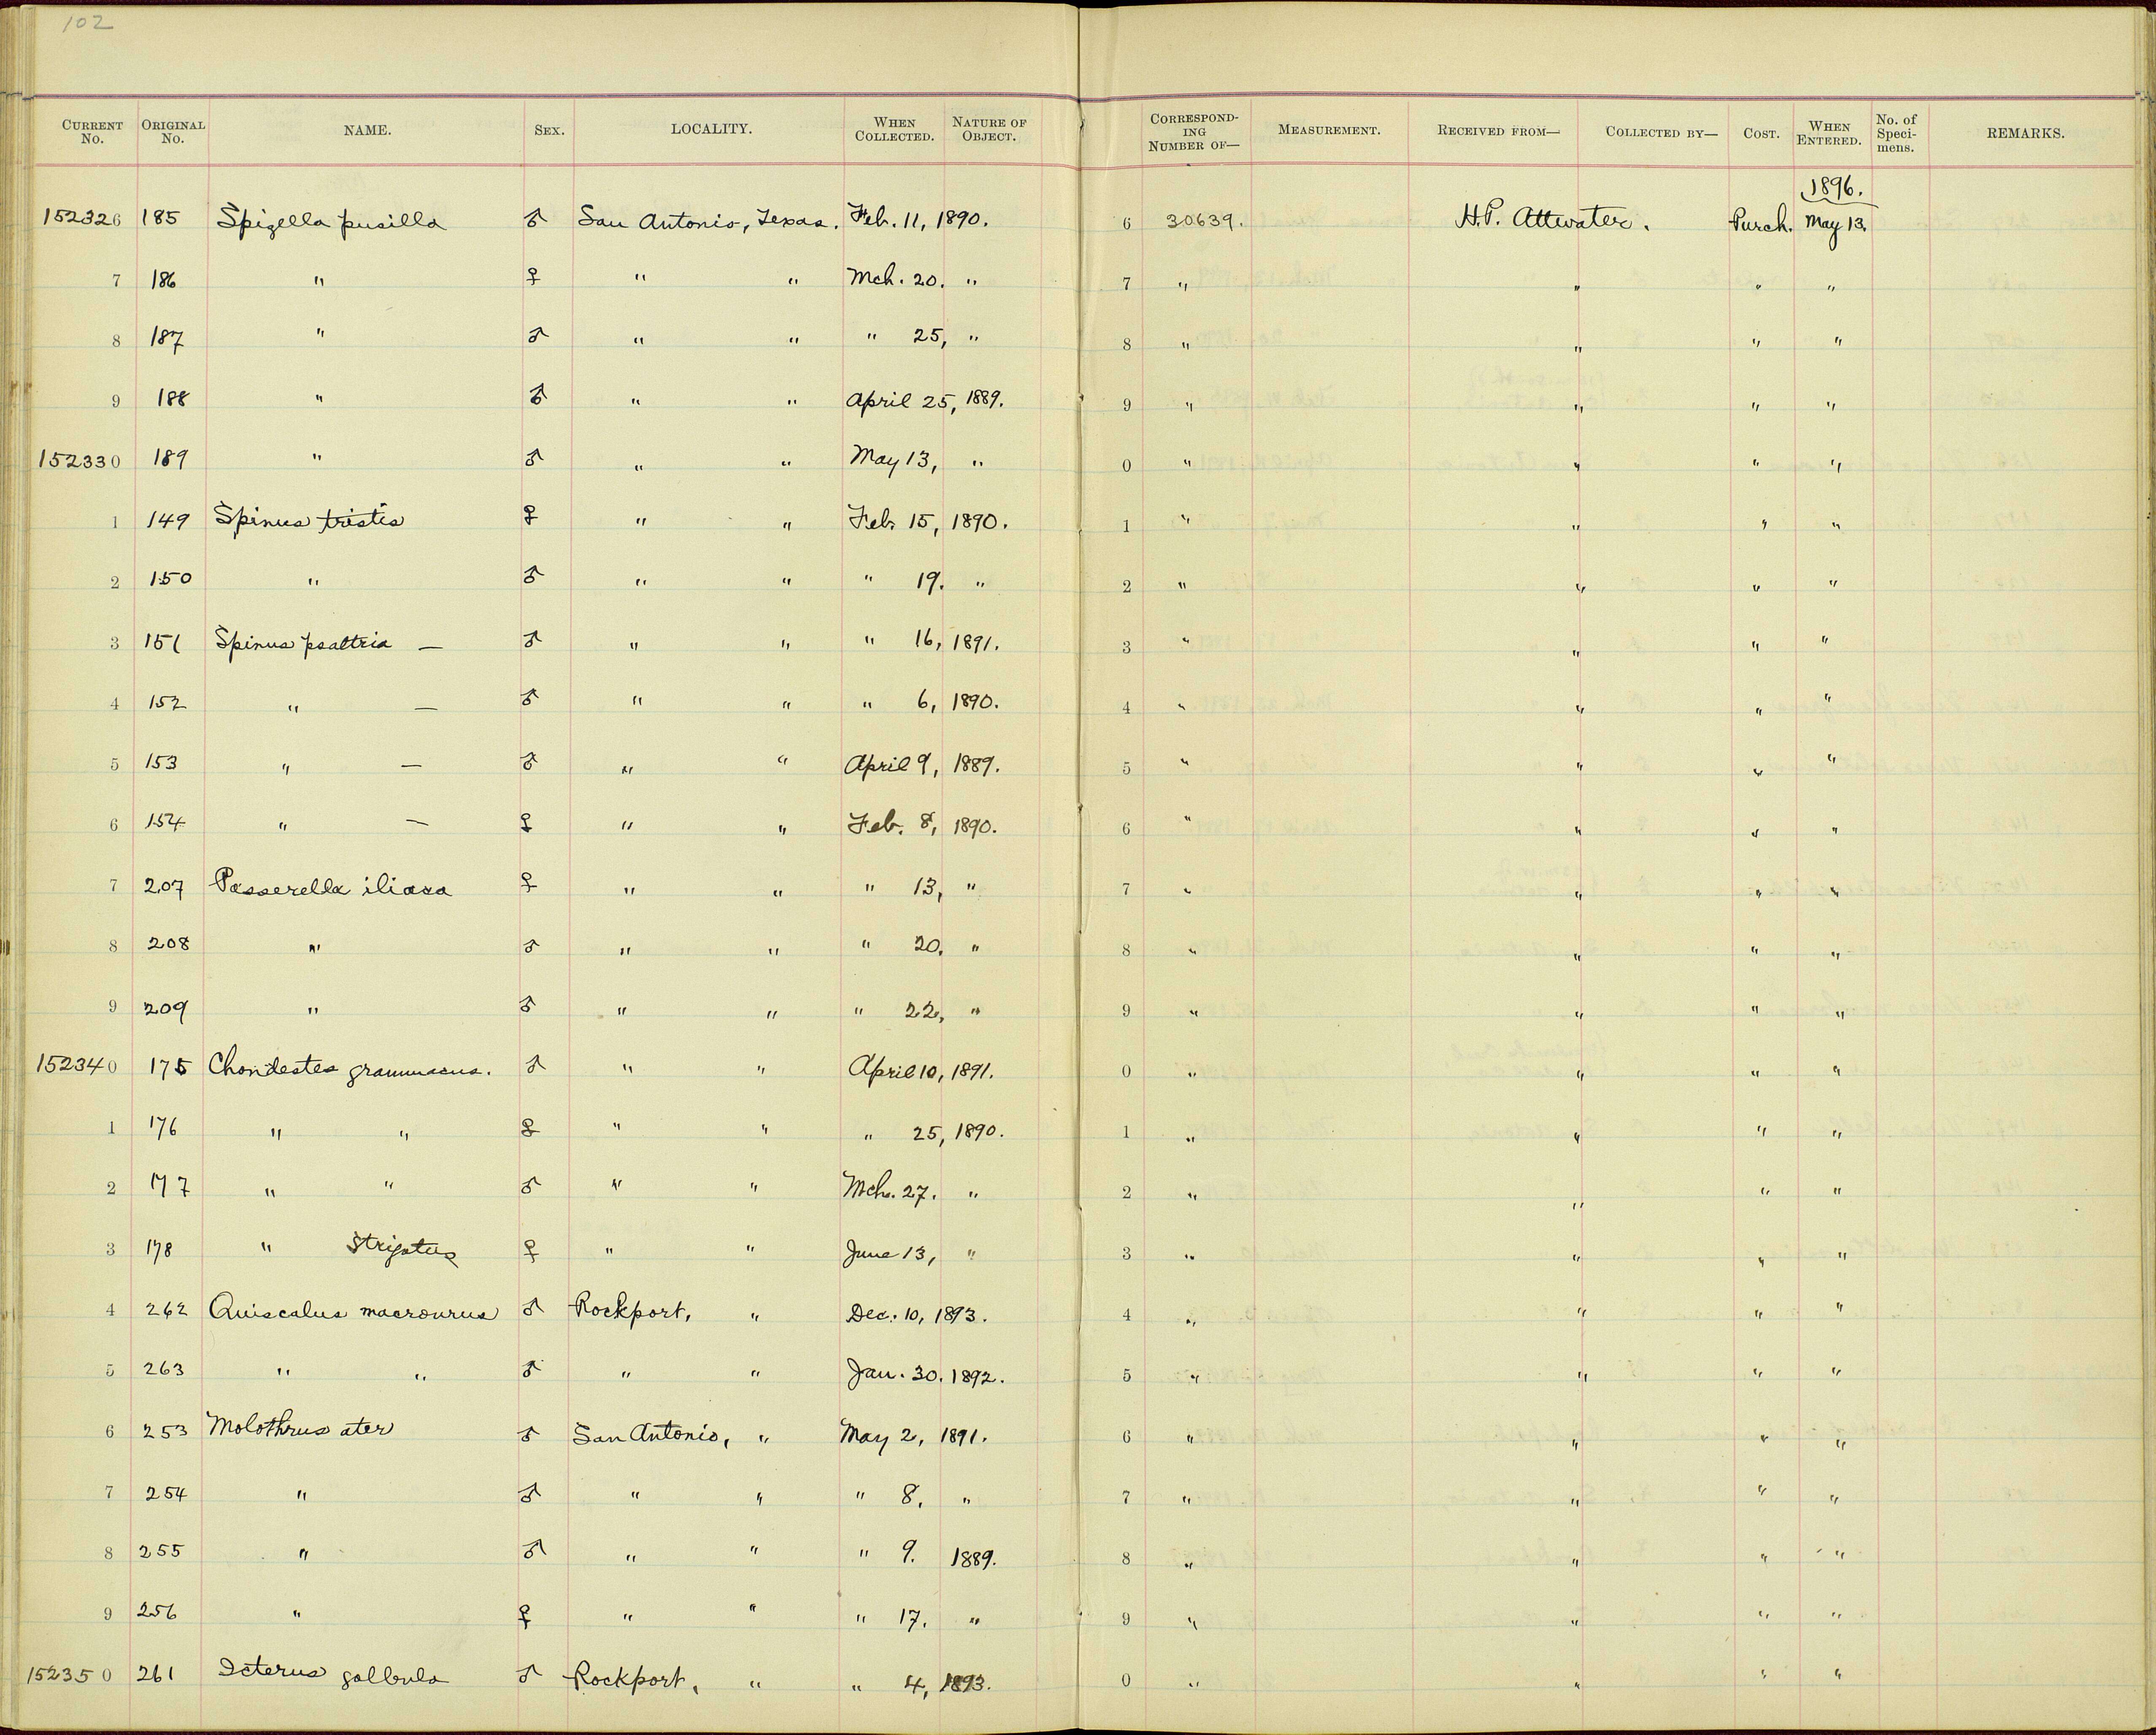 102
CURRENT No. ORIGINAL No. NAME. SEX. LOCALITY. WHEN COLLECTED. NATURE OF OBJECT. CORRESPONDING NUMBER OF— MEASUREMENT. RECEIVED FROM— COLLECTED BY— COST. WHEN ENTERED. No. of Specimens. REMARKS.
1896.
152326 185 Spizella pusilla ♂ San Antonio, Texas. Feb. 11, 1890. 6 30639. H.P. Attwater. Purch. May 13.
7 186 " ♀ " " Mch. 20. " 7 " " " "
8 187 " ♂ " " " 25, " 8 " " " "
9 188 " ♂ " " April 25, 1889. 9 " " " "
152330 189 " ♂ " " May 13, " 0 " " " "
1 149 Spinus tristis ♀ " " Feb. 15, 1890. 1 " " " "
2 150 " ♂ " " " 19. " 2 " " " "
3 151 Spinus psaltria — ♂ " " " 16, 1891. 3 " " " "
4 152 " — ♂ " " " 6, 1890. 4 " " " "
5 153 " — ♂ " " April 9, 1889. 5 " " " "
6 154 " — ♀ " " Feb. 8, 1890. 6 " " " "
7 207 Passerella iliaca ♀ " " " 13, " 7 " " " "
8 208 " ♂ " " " 20. " 8 " " " "
9 209 " ♂ " " " 22, " 9 " " " "
152340 175 Chondestes grammacus. ♂ " " April 10, 1891. 0 " " " "
1 176 " " ♀ " " " 25, 1890. 1 " " " "
2 177 " " ♂ " " Mch. 27. " 2 " " " "
3 178 " strigatus ♀ " " June 13, " 3 " " " "
4 262 Quiscalus macrourus ♂ Rockport, " Dec. 10, 1893. 4 " " " "
5 263 " " ♂ " " Jan. 30. 1892. 5 " " " "
6 253 Molothrus ater ♂ San Antonio, " May 2, 1891. 6 " " " "
7 254 " ♂ " " " 8, " 7 " " " "
8 255 " ♂ " " " 9. 1889. 8 " " " "
9 256 " ♀ " " " 17. " 9 " " " "
152350 261 Icterus galbula ♂ Rockport, " " 4, 1893. 0 " " " "